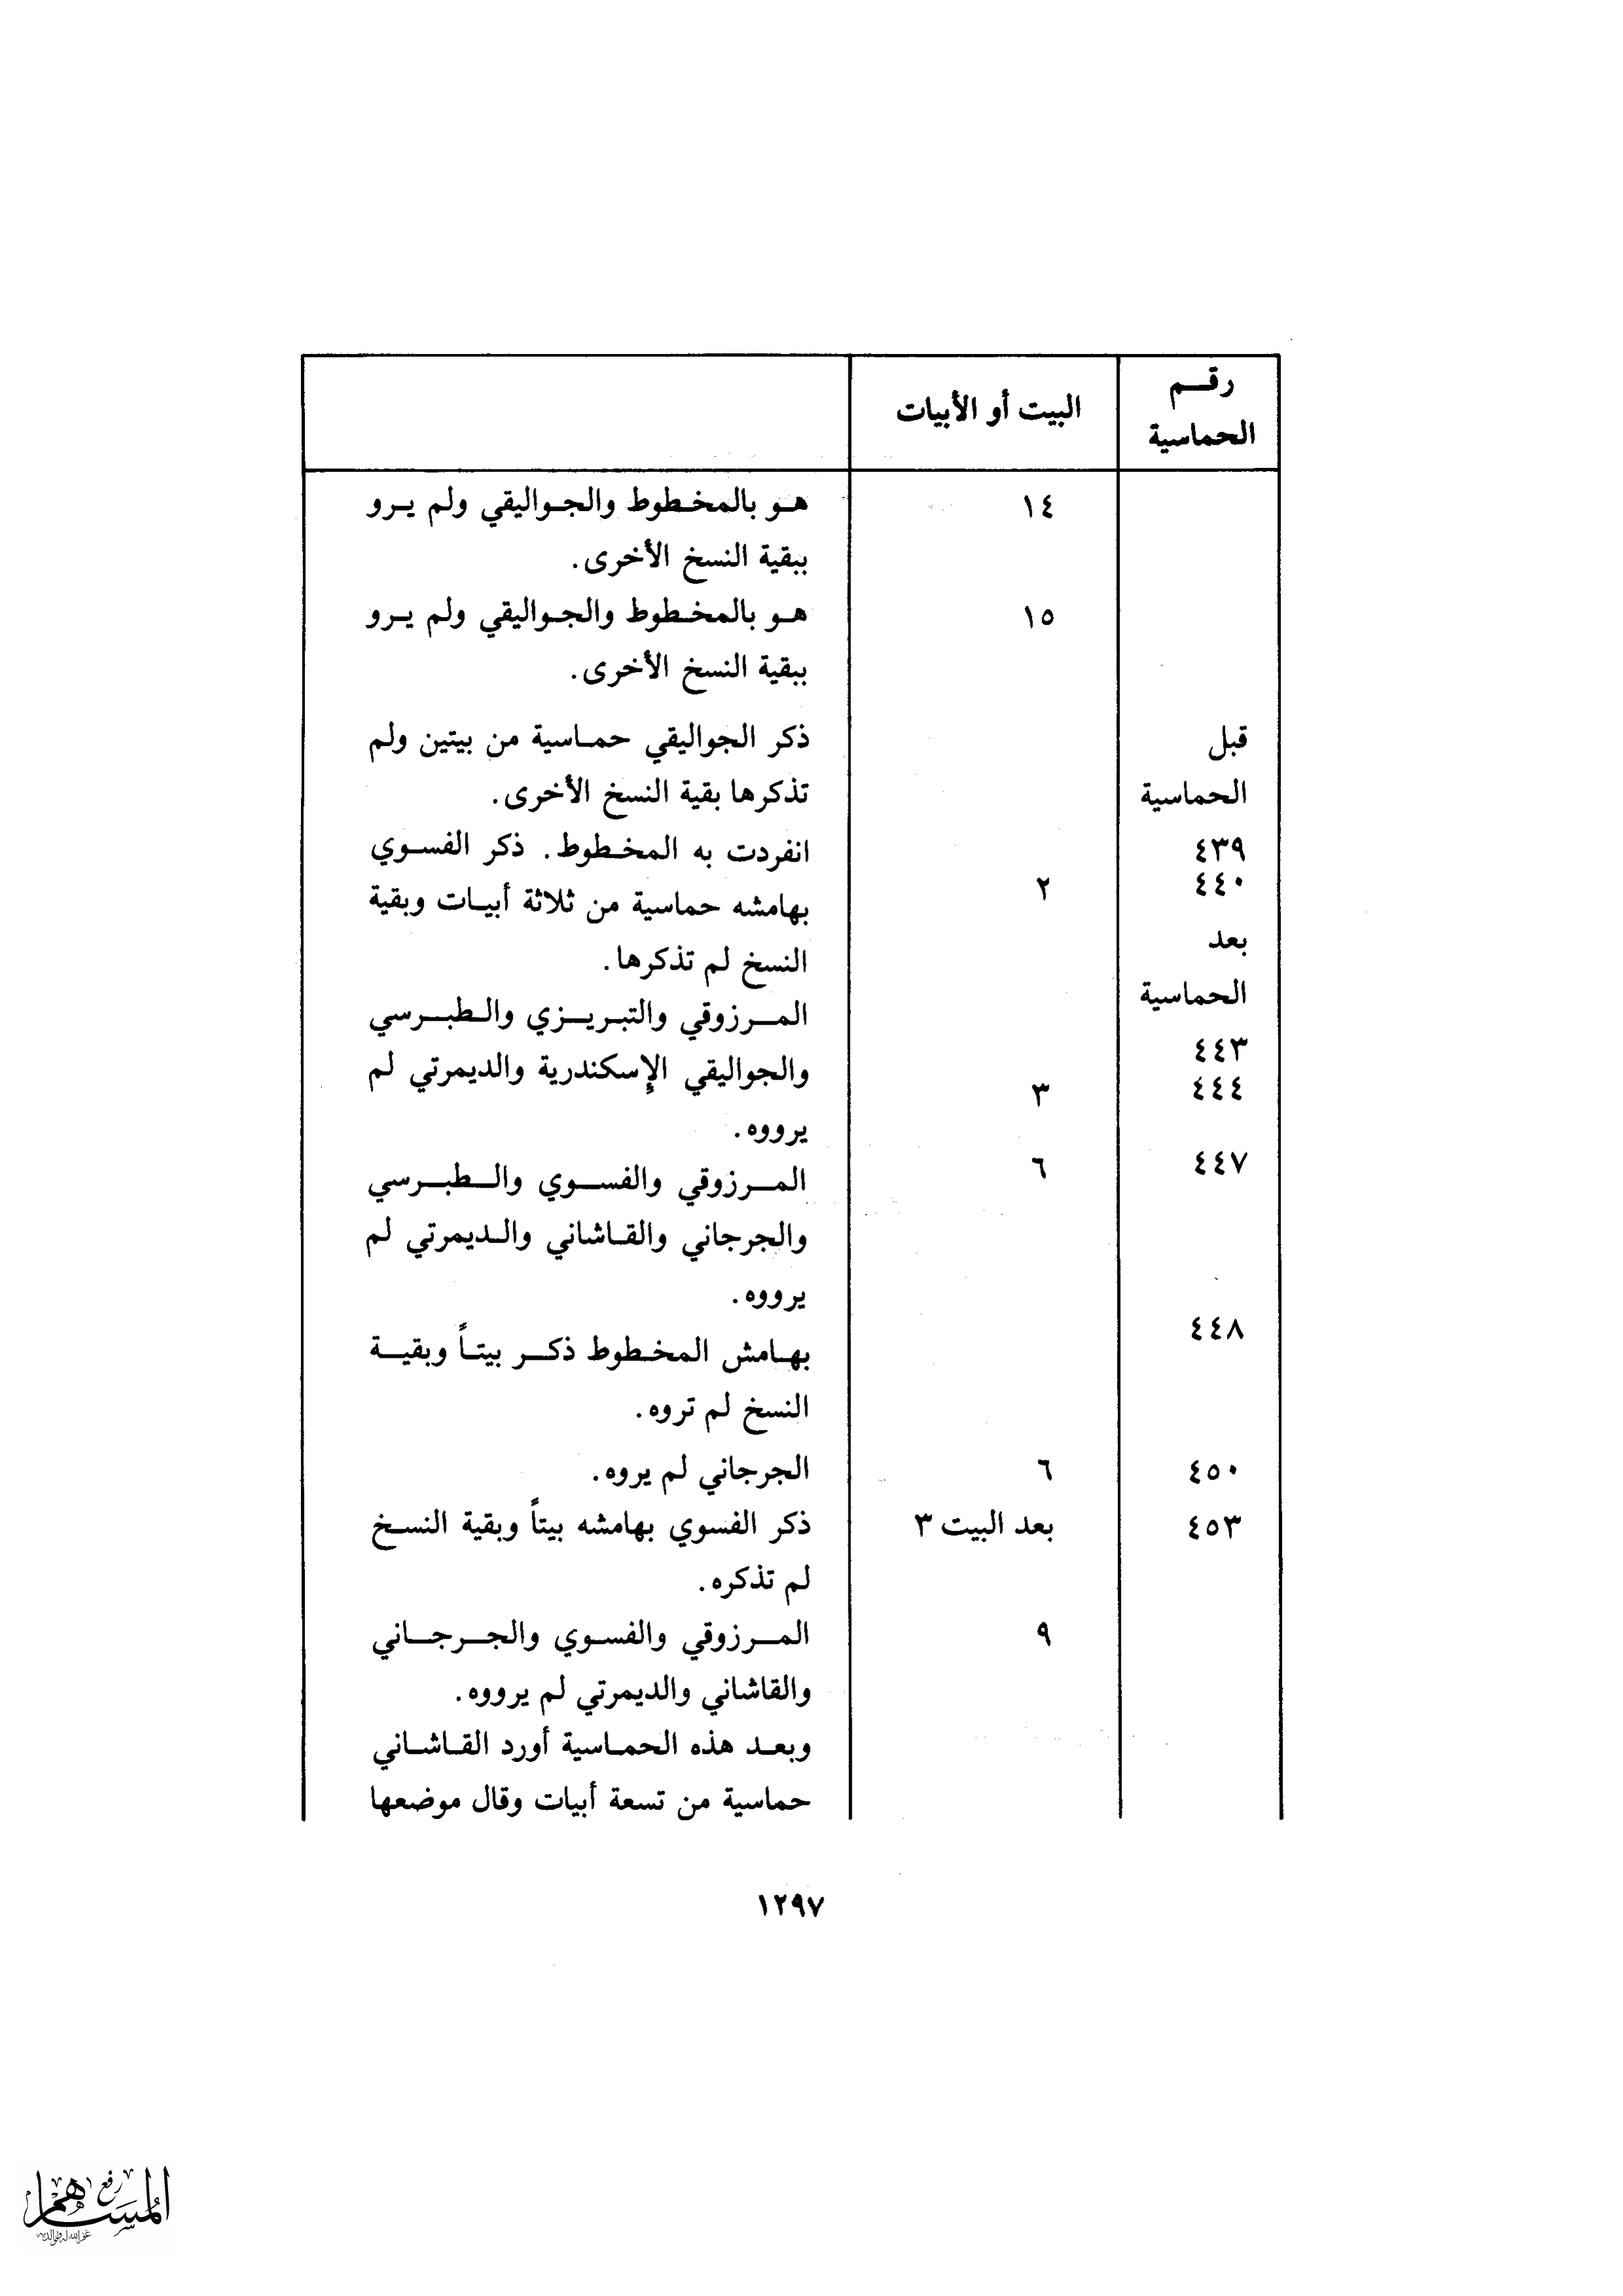 رقم الحماسية | البيت أو الأبيات |
١٤ | هو بالمخطوط والجواليقي ولم يرو
ببقية النسخ الأخرى.
١٥ | هو بالمخطوط والجواليقي ولم يرو
ببقية النسخ الأخرى.
قبل | ذكر الجواليقي حماسية من بيتين ولم
الحماسية | تذكرها بقية النسخ الأخرى.
٤٣٩ | انفردت به المخطوط. ذكر الفسوي
٤٤٠ | ٢ | بهامشه حماسية من ثلاثة أبيات وبقية
بعد | النسخ لم تذكرها.
الحماسية | المرزوقي والتبريزي والطبرسي
٤٤٣ | والجواليقي الإسكندرية والديمرتي لم
٤٤٤ | ٣ | يرووه.
٤٤٧ | ٦ | المرزوقي والفسوي والطبرسي
والجرجاني والقاشاني والديمرتي لم
يرووه.
٤٤٨ | بهامش المخطوط ذكر بيتاً وبقية
النسخ لم تروه.
٤٥٠ | ٦ | الجرجاني لم يروه.
٤٥٣ | بعد البيت ٣ | ذكر الفسوي بهامشه بيتاً وبقية النسخ
لم تذكره.
٩ | المرزوقي والفسوي والجرجاني
والقاشاني والديمرتي لم يرووه.
وبعد هذه الحماسية أورد القاشاني
حماسية من تسعة أبيات وقال موضعها
١٢٩٧
رفع
المساهم
غفر الله له ولوالديه